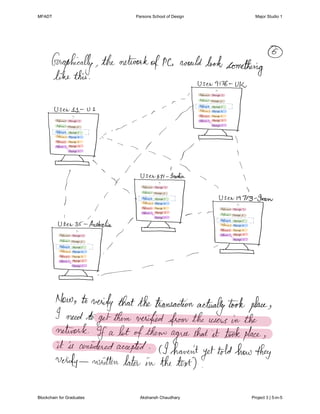 MFADT Parsons School of Design Major Studio 1
6
Graphically, the network of PC, would look something
like this.
User 9176 - UK
User 11 - U1
User 871 - India
User 19713 - Iran
User 35 - Australia
Now, to verify that the transaction actually took place,
I need to get them verified from the users in the
network. If a lot of them agree that it took place,
it is considered accepted. (I haven't yet told how they
verify — written later in the text).
Blockchain for Graduates Akshansh Chaudhary Project 3 | 5-in-5